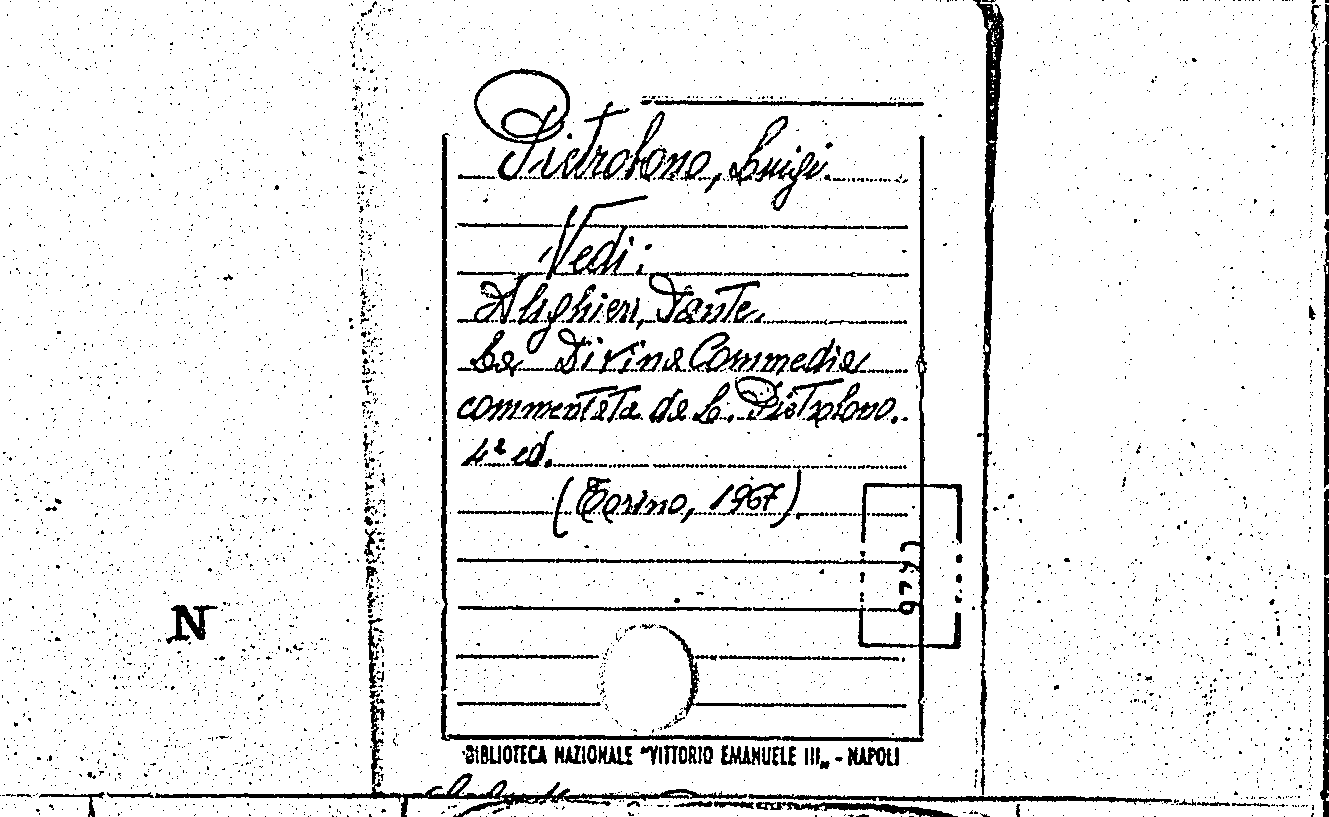 Pietrobono, Luigi.
Vedi:
Alighieri, Dante.
La Divina Commedia
commentata da L. Pietrobono.
4ª ed.
(Torino, 1967).
N
BIBLIOTECA NAZIONALE "VITTORIO EMANUELE III„ - NAPOLI